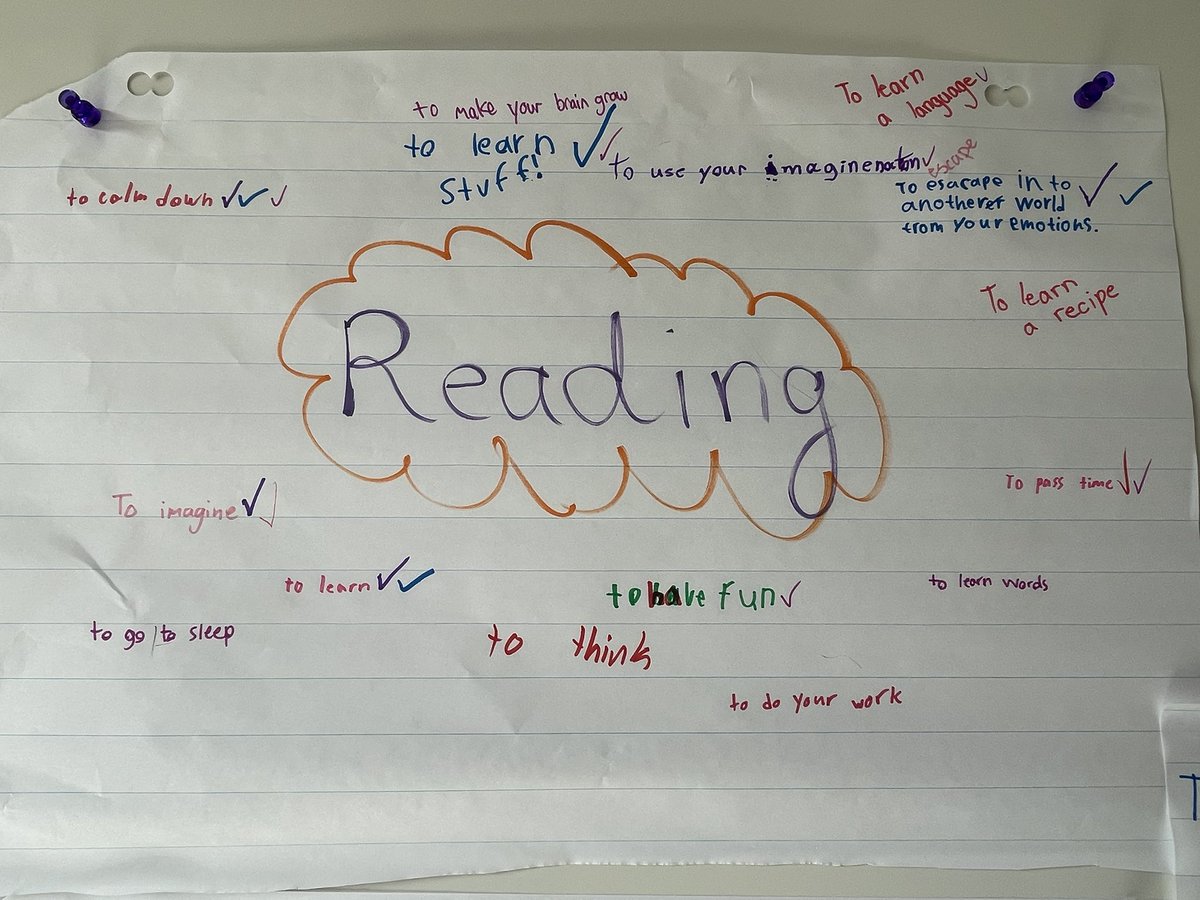 to make your brain grow
To learn
a language
to learn
stuff!
to use your imaginenation
escape
to calm down
To esacape in to
anotheref world
from your emotions.
To learn
a recipe
Reading
To pass time
To imagine
to learn
to have fun
to learn words
to go to sleep
to think
to do your work
T